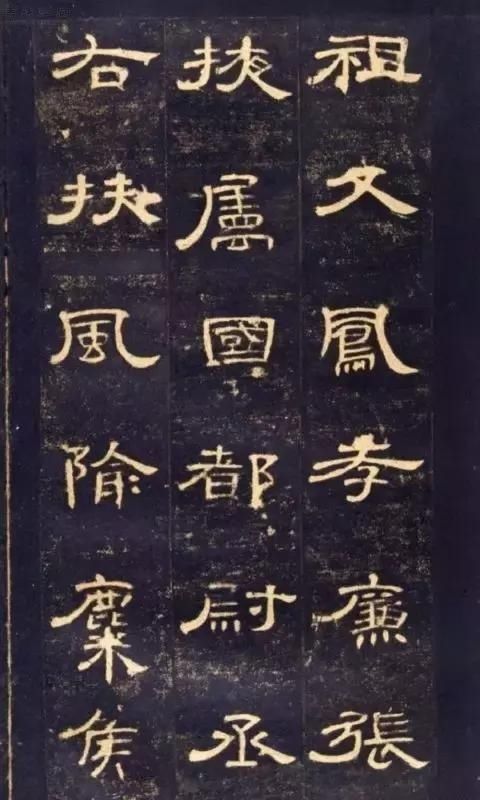 祖文鳳孝廉張
掖屬國都尉丞
右扶風隃麋侯